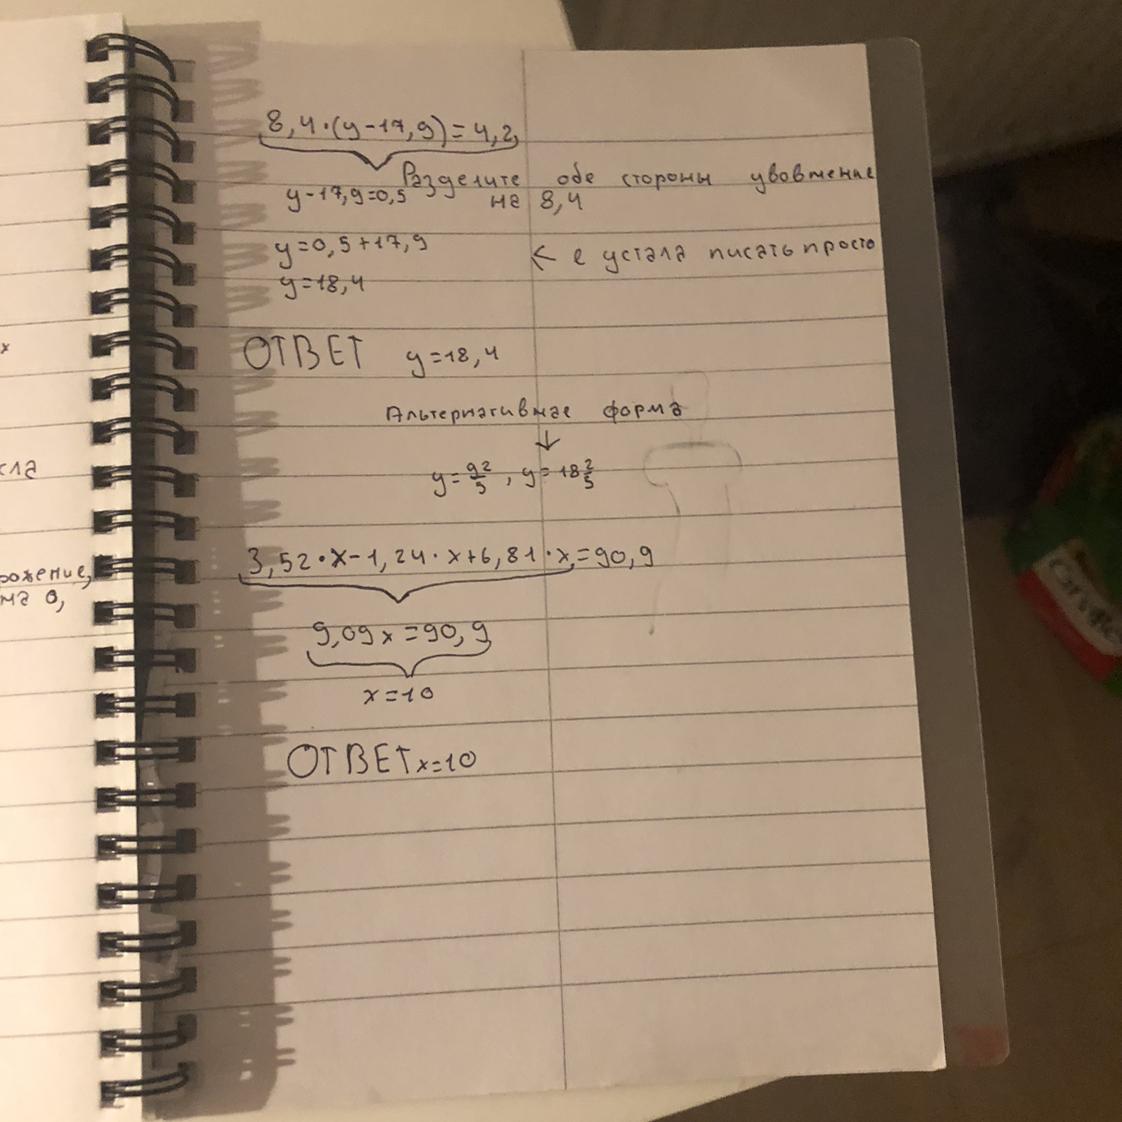 8,4·(y-17,9)=4,2
Разделите обе стороны
y-17,9=0,5 на 8,4
y=0,5+17,9
← е устала писать просто
y=18,4
ОТВЕТ y=18,4
Альтернативнае форма
↓
y=92/5, y=18 2/5
3,52·x-1,24·x+6,81·x=90,9
9,09x=90,9
x=10
ОТВЕТ x=10
x
рожение,
на 0,